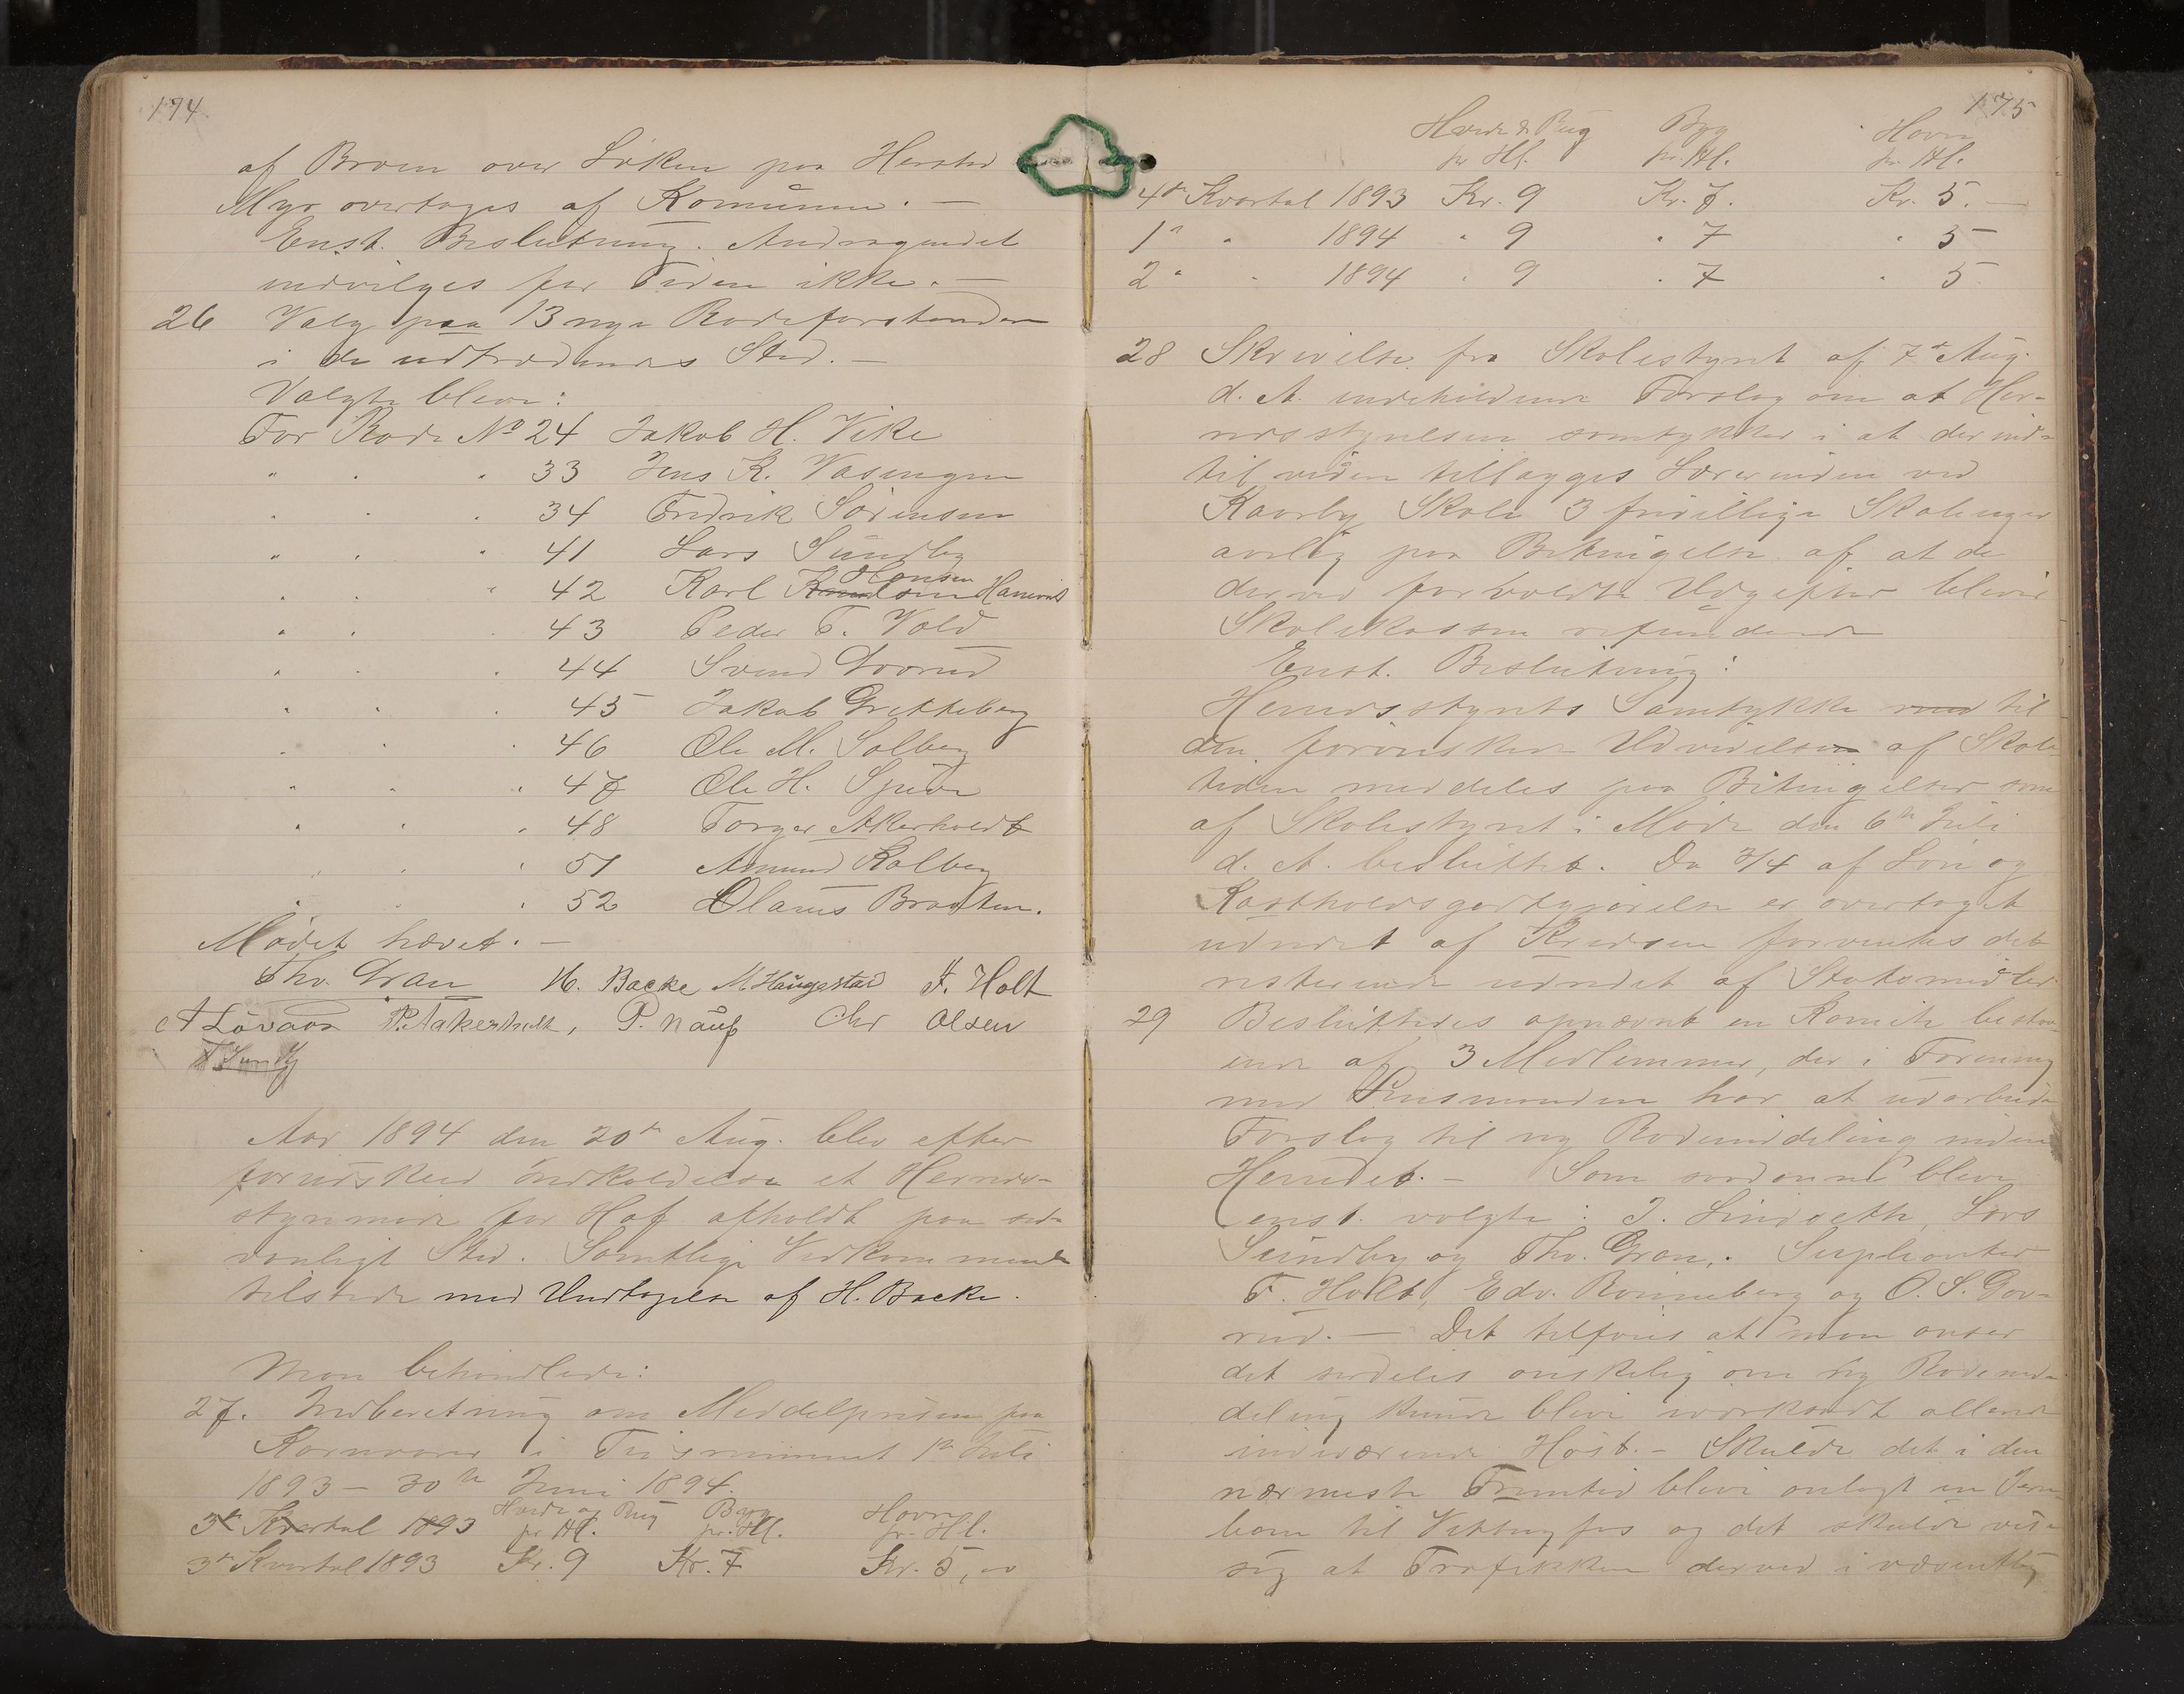 174.
af Broen over Löken paa Hersted
Myr overtages af Komunen. —
Enst. Beslutning. Andragendet
indvilges for Tiden ikke. —
26 Valg paa 13 nye Rodeforstandere
i de udtrædendes Sted. —
Valgte bleve:
For Rode No 24 Jakob H. Vike
" " " 33 Jens K. Vasengen
" " " 34 Fredrik Sörensen
" " " 41 Lars Sundby
" " " 42 Karl Knudsen Hansen
" " " 43 Peder T. Vold
" " " 44 Svend Govrud
" " " 45 Jakob Gretteberg
" " " 46 Ole M. Solberg
" " " 47 Ole H.
" " " 48 Torger Akerholdt
" " " 51 Amund Kolberg
" " " 52 Olaus Braaten.
Mödet hævet. —
Tho. Gran H. Backe M. Haugestad F. Holt
A Lövaas P. Aakerholt, P. Nauf Chr Olsen
Aar 1894 den 20de Aug. blev efter
forudskeed Indkaldelse et Herreds-
styremöde for Hof afholdt paa sed-
vanligt Sted. Samtlige Vedkommende
tilstede med Undtagelse af H. Backe.
Man behandlede:
27. Indberetning om Middelprisen paa
Kornvarer i Tidsrummet 1ste Juli
1893 — 30te Juni 1894.
Hvede og Rug Byg Havre
3de Kvartal 1893 pr Hl. pr. Hl. pr. Hl.
3de Kvartal 1893 Kr. 9 Kr. 7 Kr. 5,00
175
Hvede & Rug Byg Havre
pr Hl. pr. Hl. pr. Hl.
4de Kvartal 1893 Kr. 9 Kr. 7. Kr. 5. —
1" " 1894 " 9 " 7 " 5
2" " 1894 " 9 " 7 " 5
28 Skrivelse fra Skolestyret af 7de Aug.
d. A. indeholdende Forslag om at Her-
redsstyrelsen samtykker i at der ind-
til videre tillægges Lærerinden ved
Kaarby Skole 3 frivillige Skoleuger
aarlig paa Betingelse af at de
derved forvoldte Udgifter bliver
Skolekassen refunderede
Enst. Beslutning:
Herredsstyrets Samtykke med til
den forönskede Udvidelsen af Skole-
tiden meddeles paa Betingelser som
af Skolestyret i Möde den 6te Juli
d. A. besluttet. Da 3/4 af Lön og
Kostholdsgodtgjörelse er overtaget
udredet af Kredsen forventes det
resterende udredet af Statsmidler.
29 Besluttedes opnævnt en Komite bestaa-
ende af 3 Medlemmer, der i Forening
med Lensmanden har at udarbeide
Forslag til ny Rodeinddeling inden
Herredet. — Som saadanne bleve
enst. valgte: J. Lindseth, Lars
Sundby og Tho. Gran,. Suplianter
F. Holt, Edv. Ronneberg og O. S. Gov-
rud. — Det tilföies at man anser
det særdeles önskelig om ny Rodeind-
deling kunde blive iværksat allerede
indeværende Höst. — Skulde det i den
nærmeste Fremtid blive anlagt en Jern-
bane til Vittingfos og det skulde vise
sig at Trafikken derved i væsentlig